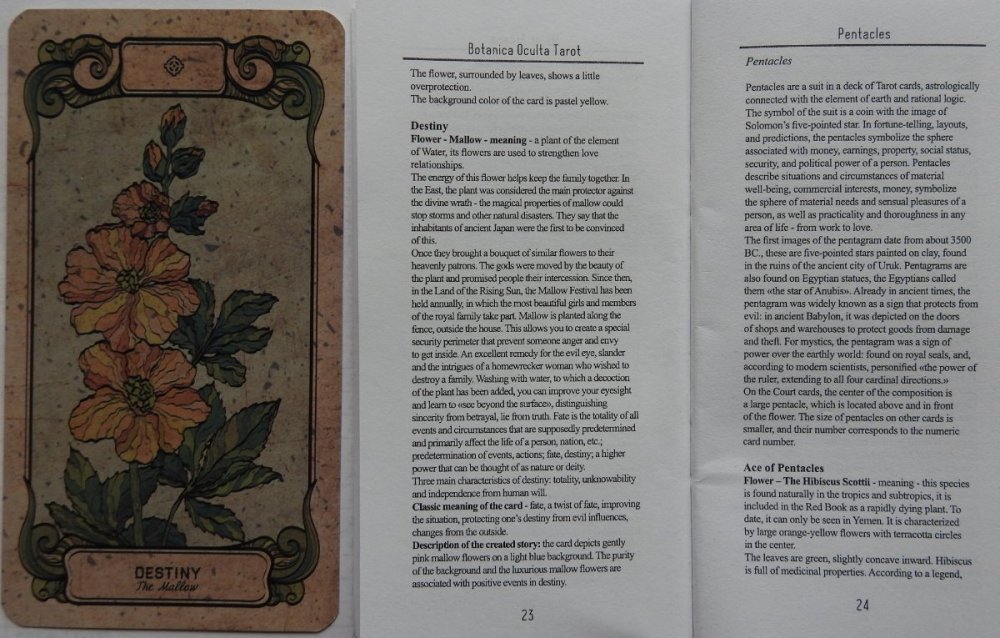 DESTINY
The Mallow
Botanica Oculta Tarot
The flower, surrounded by leaves, shows a little
overprotection.
The background color of the card is pastel yellow.
Destiny
Flower - Mallow - meaning - a plant of the element
of Water, its flowers are used to strengthen love
relationships.
The energy of this flower helps keep the family together. In
the East, the plant was considered the main protector against
the divine wrath - the magical properties of mallow could
stop storms and other natural disasters. They say that the
inhabitants of ancient Japan were the first to be convinced
of this.
Once they brought a bouquet of similar flowers to their
heavenly patrons. The gods were moved by the beauty of
the plant and promised people their intercession. Since then,
in the Land of the Rising Sun, the Mallow Festival has been
held annually, in which the most beautiful girls and members
of the royal family take part. Mallow is planted along the
fence, outside the house. This allows you to create a special
security perimeter that prevent someone anger and envy
to get inside. An excellent remedy for the evil eye, slander
and the intrigues of a homewrecker woman who wished to
destroy a family. Washing with water, to which a decoction
of the plant has been added, you can improve your eyesight
and learn to «see beyond the surface», distinguishing
sincerity from betrayal, lie from truth. Fate is the totality of all
events and circumstances that are supposedly predetermined
and primarily affect the life of a person, nation, etc.;
predetermination of events, actions; fate, destiny; a higher
power that can be thought of as nature or deity.
Three main characteristics of destiny: totality, unknowability
and independence from human will.
Classic meaning of the card - fate, a twist of fate, improving
the situation, protecting one's destiny from evil influences,
changes from the outside.
Description of the created story: the card depicts gently
pink mallow flowers on a light blue background. The purity
of the background and the luxurious mallow flowers are
associated with positive events in destiny.
23
Pentacles
Pentacles
Pentacles are a suit in a deck of Tarot cards, astrologically
connected with the element of earth and rational logic.
The symbol of the suit is a coin with the image of
Solomon's five-pointed star. In fortune-telling, layouts,
and predictions, the pentacles symbolize the sphere
associated with money, earnings, property, social status,
security, and political power of a person. Pentacles
describe situations and circumstances of material
well-being, commercial interests, money, symbolize
the sphere of material needs and sensual pleasures of a
person, as well as practicality and thoroughness in any
area of life - from work to love.
The first images of the pentagram date from about 3500
BC., these are five-pointed stars painted on clay, found
in the ruins of the ancient city of Uruk. Pentagrams are
also found on Egyptian statues, the Egyptians called
them «the star of Anubis». Already in ancient times, the
pentagram was widely known as a sign that protects from
evil: in ancient Babylon, it was depicted on the doors
of shops and warehouses to protect goods from damage
and theft. For mystics, the pentagram was a sign of
power over the earthly world: found on royal seals, and,
according to modern scientists, personified «the power of
the ruler, extending to all four cardinal directions.»
On the Court cards, the center of the composition is
a large pentacle, which is located above and in front
of the flower. The size of pentacles on other cards is
smaller, and their number corresponds to the numeric
card number.
Ace of Pentacles
Flower – The Hibiscus Scottii - meaning - this species
is found naturally in the tropics and subtropics, it is
included in the Red Book as a rapidly dying plant. To
date, it can only be seen in Yemen. It is characterized
by large orange-yellow flowers with terracotta circles
in the center.
The leaves are green, slightly concave inward. Hibiscus
is full of medicinal properties. According to a legend,
24